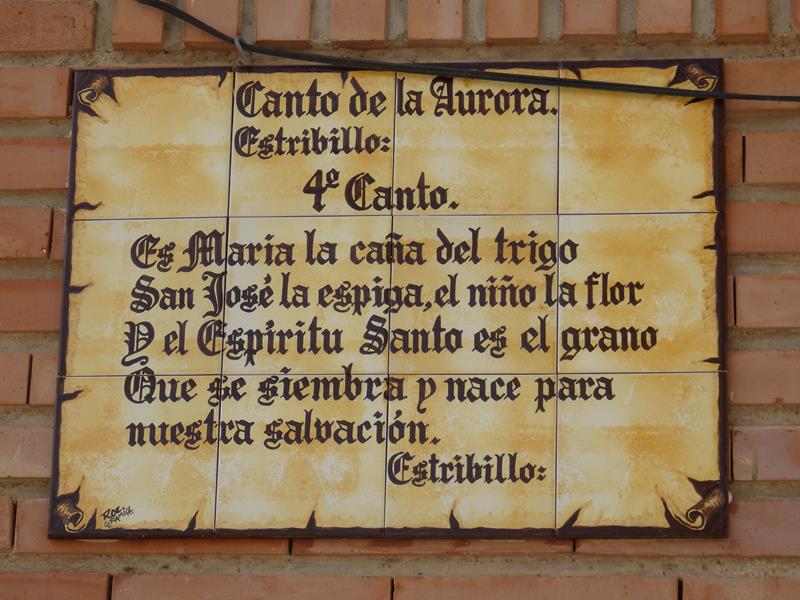 Canto de la Aurora.
Estribillo:
4º Canto.
Es Maria la caña del trigo
San José la espiga, el niño la flor
Y el Espíritu Santo es el grano
Que se siembra y nace para
nuestra salvación.
Estribillo: